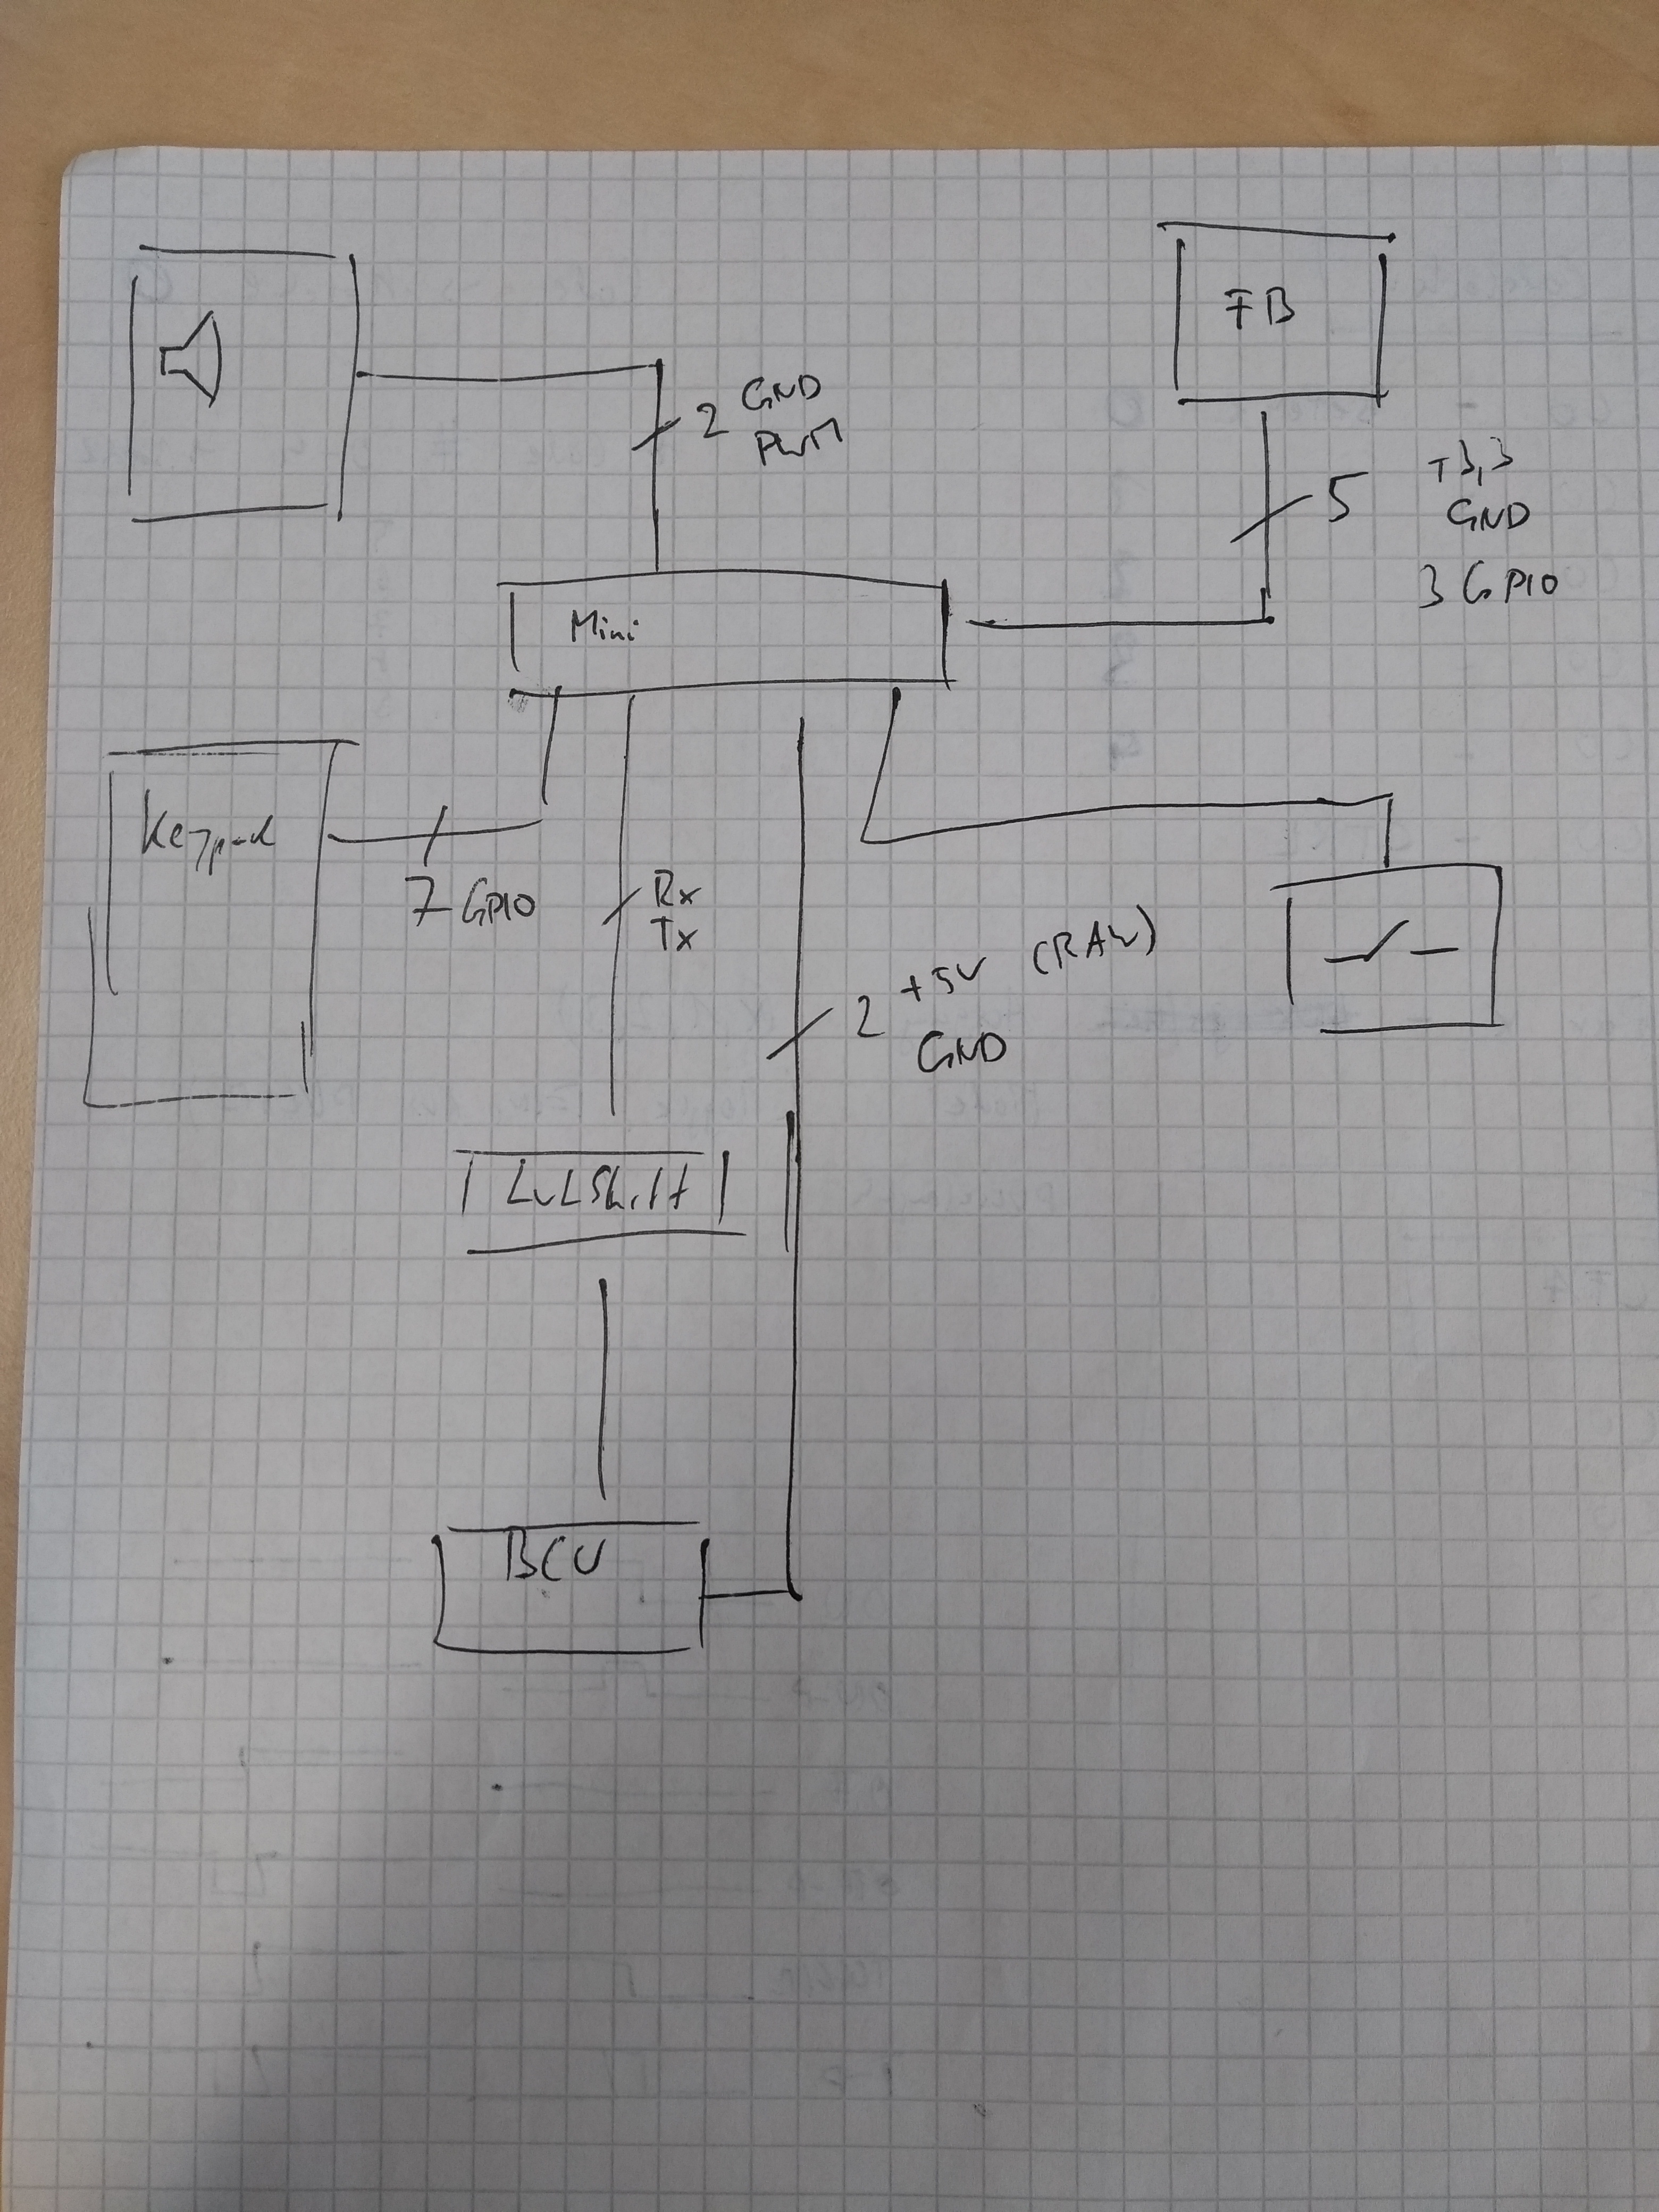 FB
2 GND
PWM
5 +3,3
GND
3 GPIO
Mini
Keypad
7 GPIO
Rx
Tx
2 +5V (RAW)
GND
LvLShift
BCU